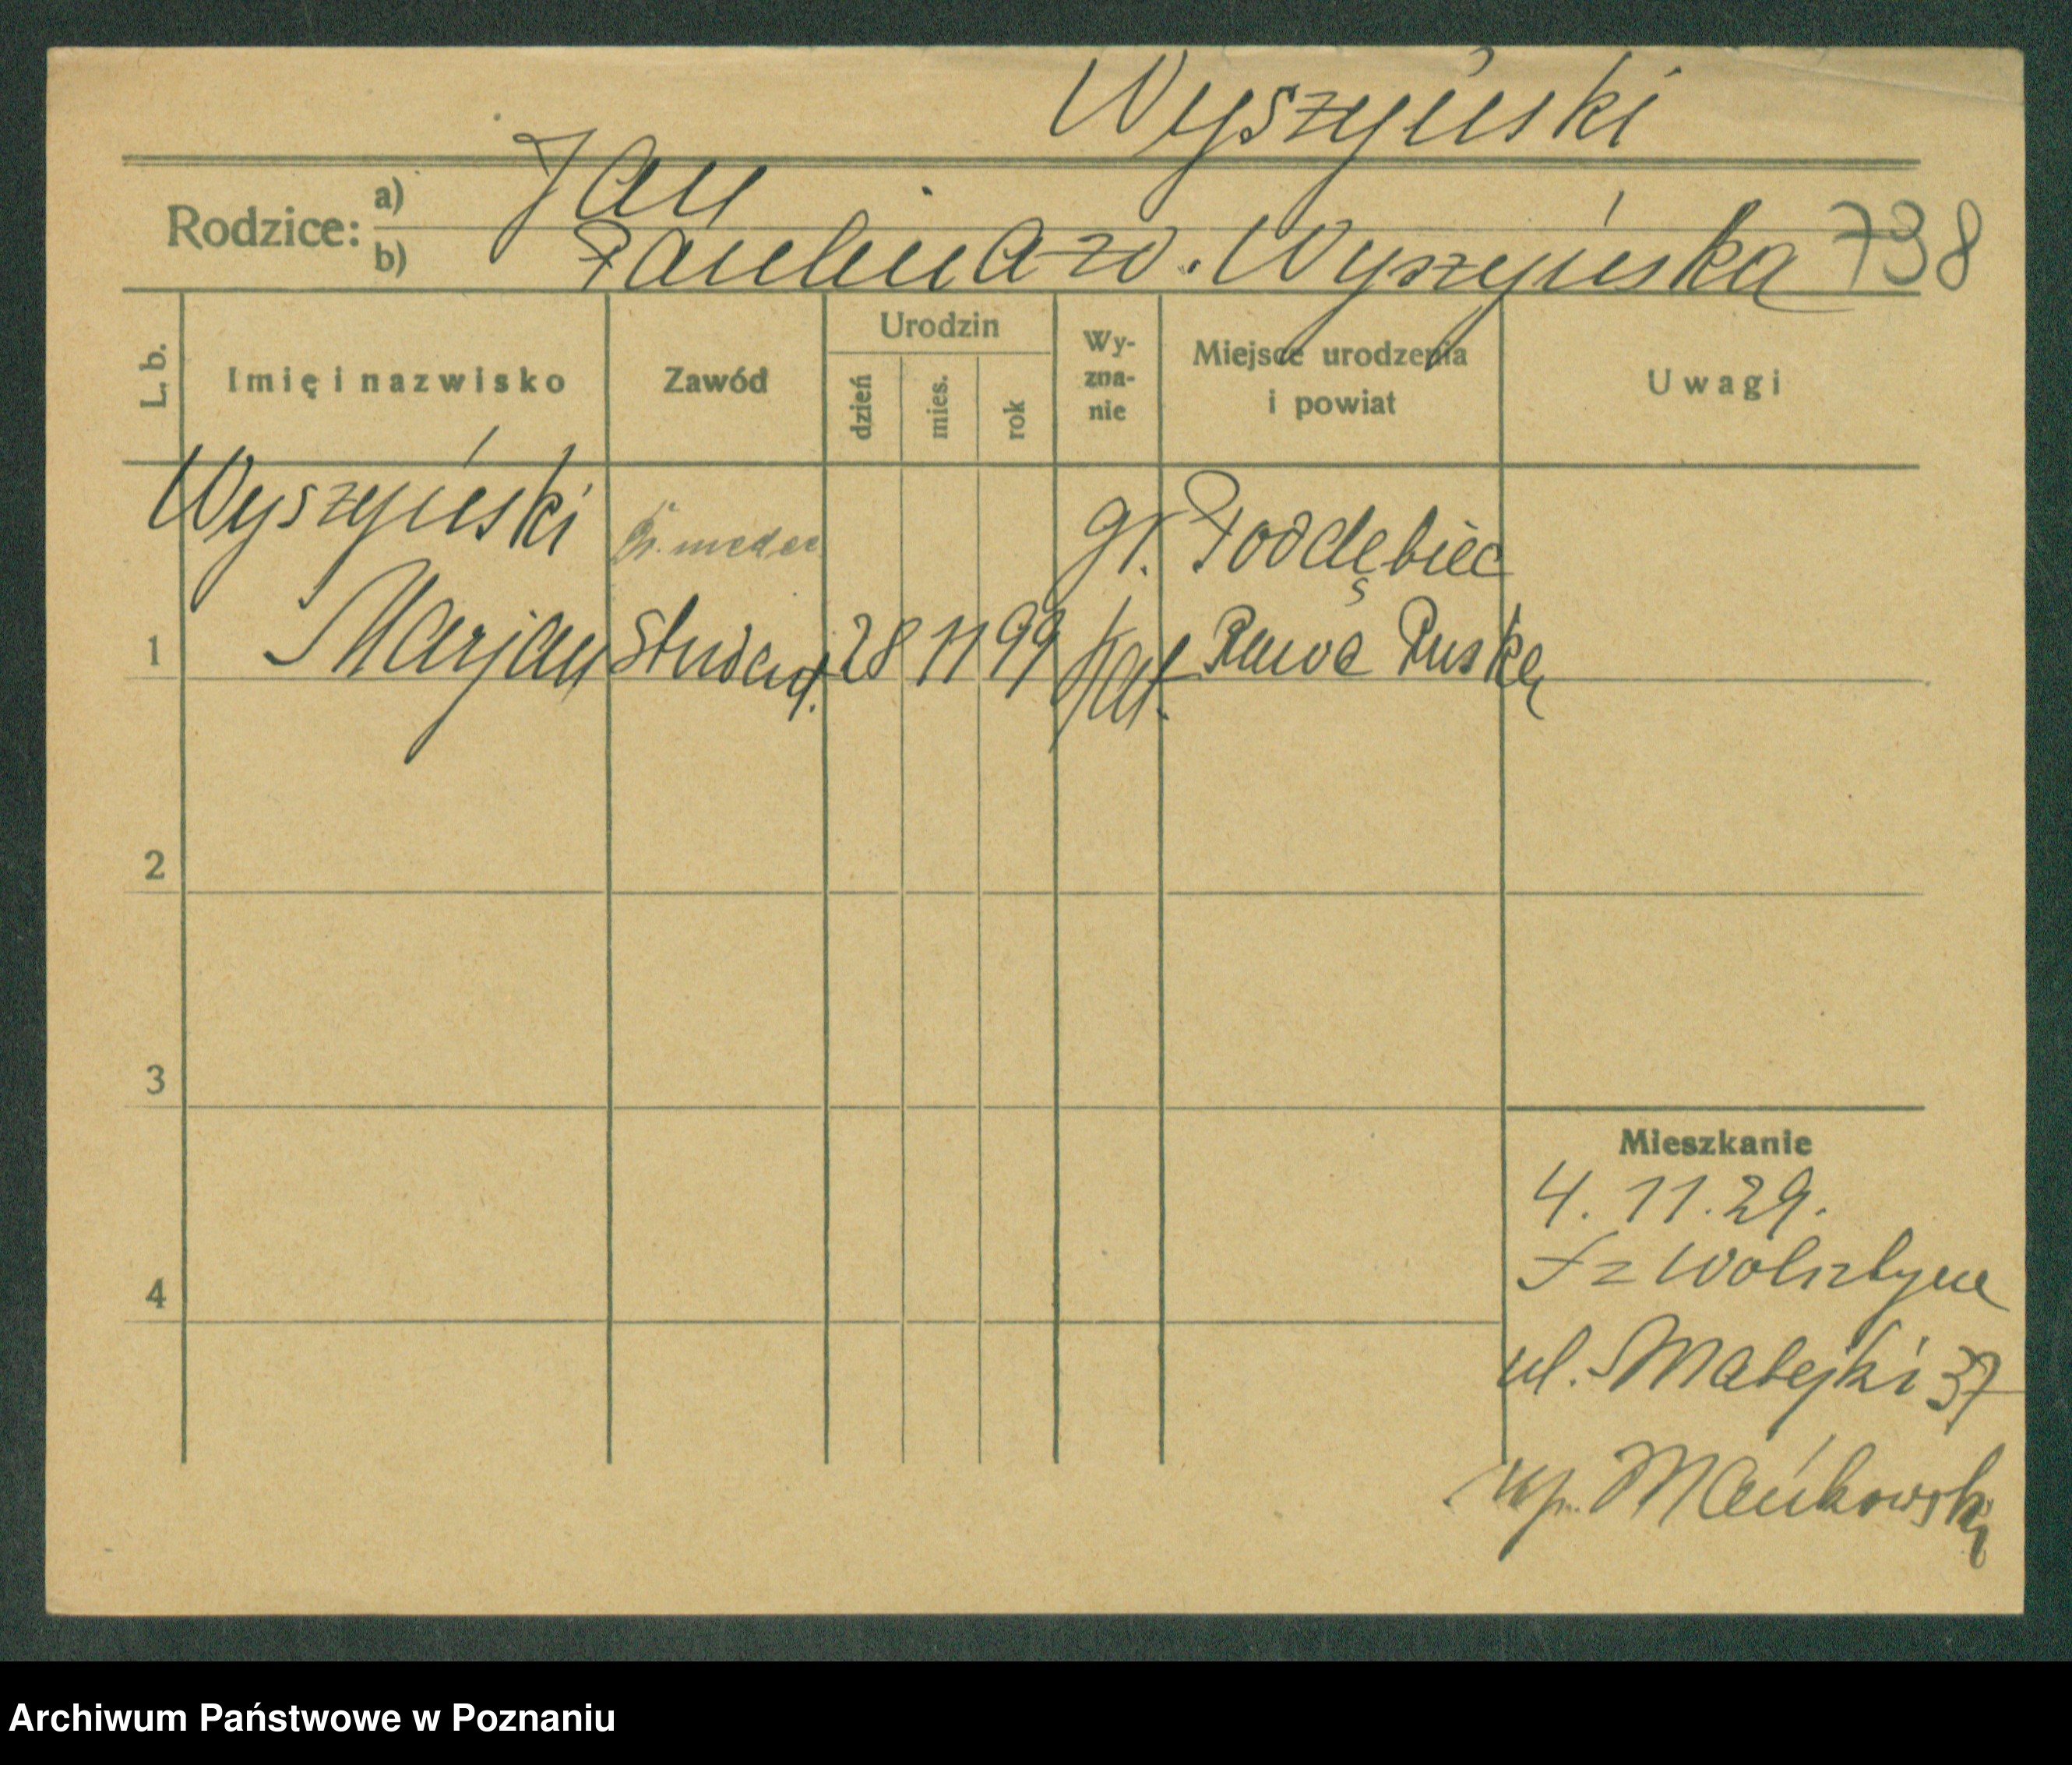 Wyszyński
Rodzice: a) Jan
b) Paulina zd. Wyszyńska 738
L. b. Imię i nazwisko Zawód Urodzin dzień mies. rok Wy-zna-nie Miejsce urodzenia i powiat Uwagi
Wyszyński gr. Poddębiec
1 Marjan student. 28 11 99 kat. Rawa Ruska
2
3
Mieszkanie
4. 11. 29.
z Wolsztyna
4
ul. Matejki 37
Mańkowski
Archiwum Państwowe w Poznaniu